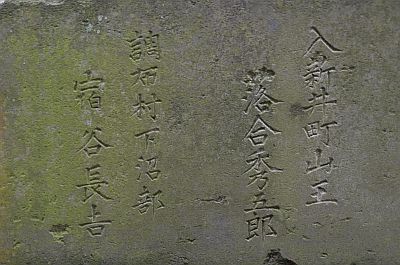 入新井町山王
落合秀五郎
調布村下沼部
宿谷長吉